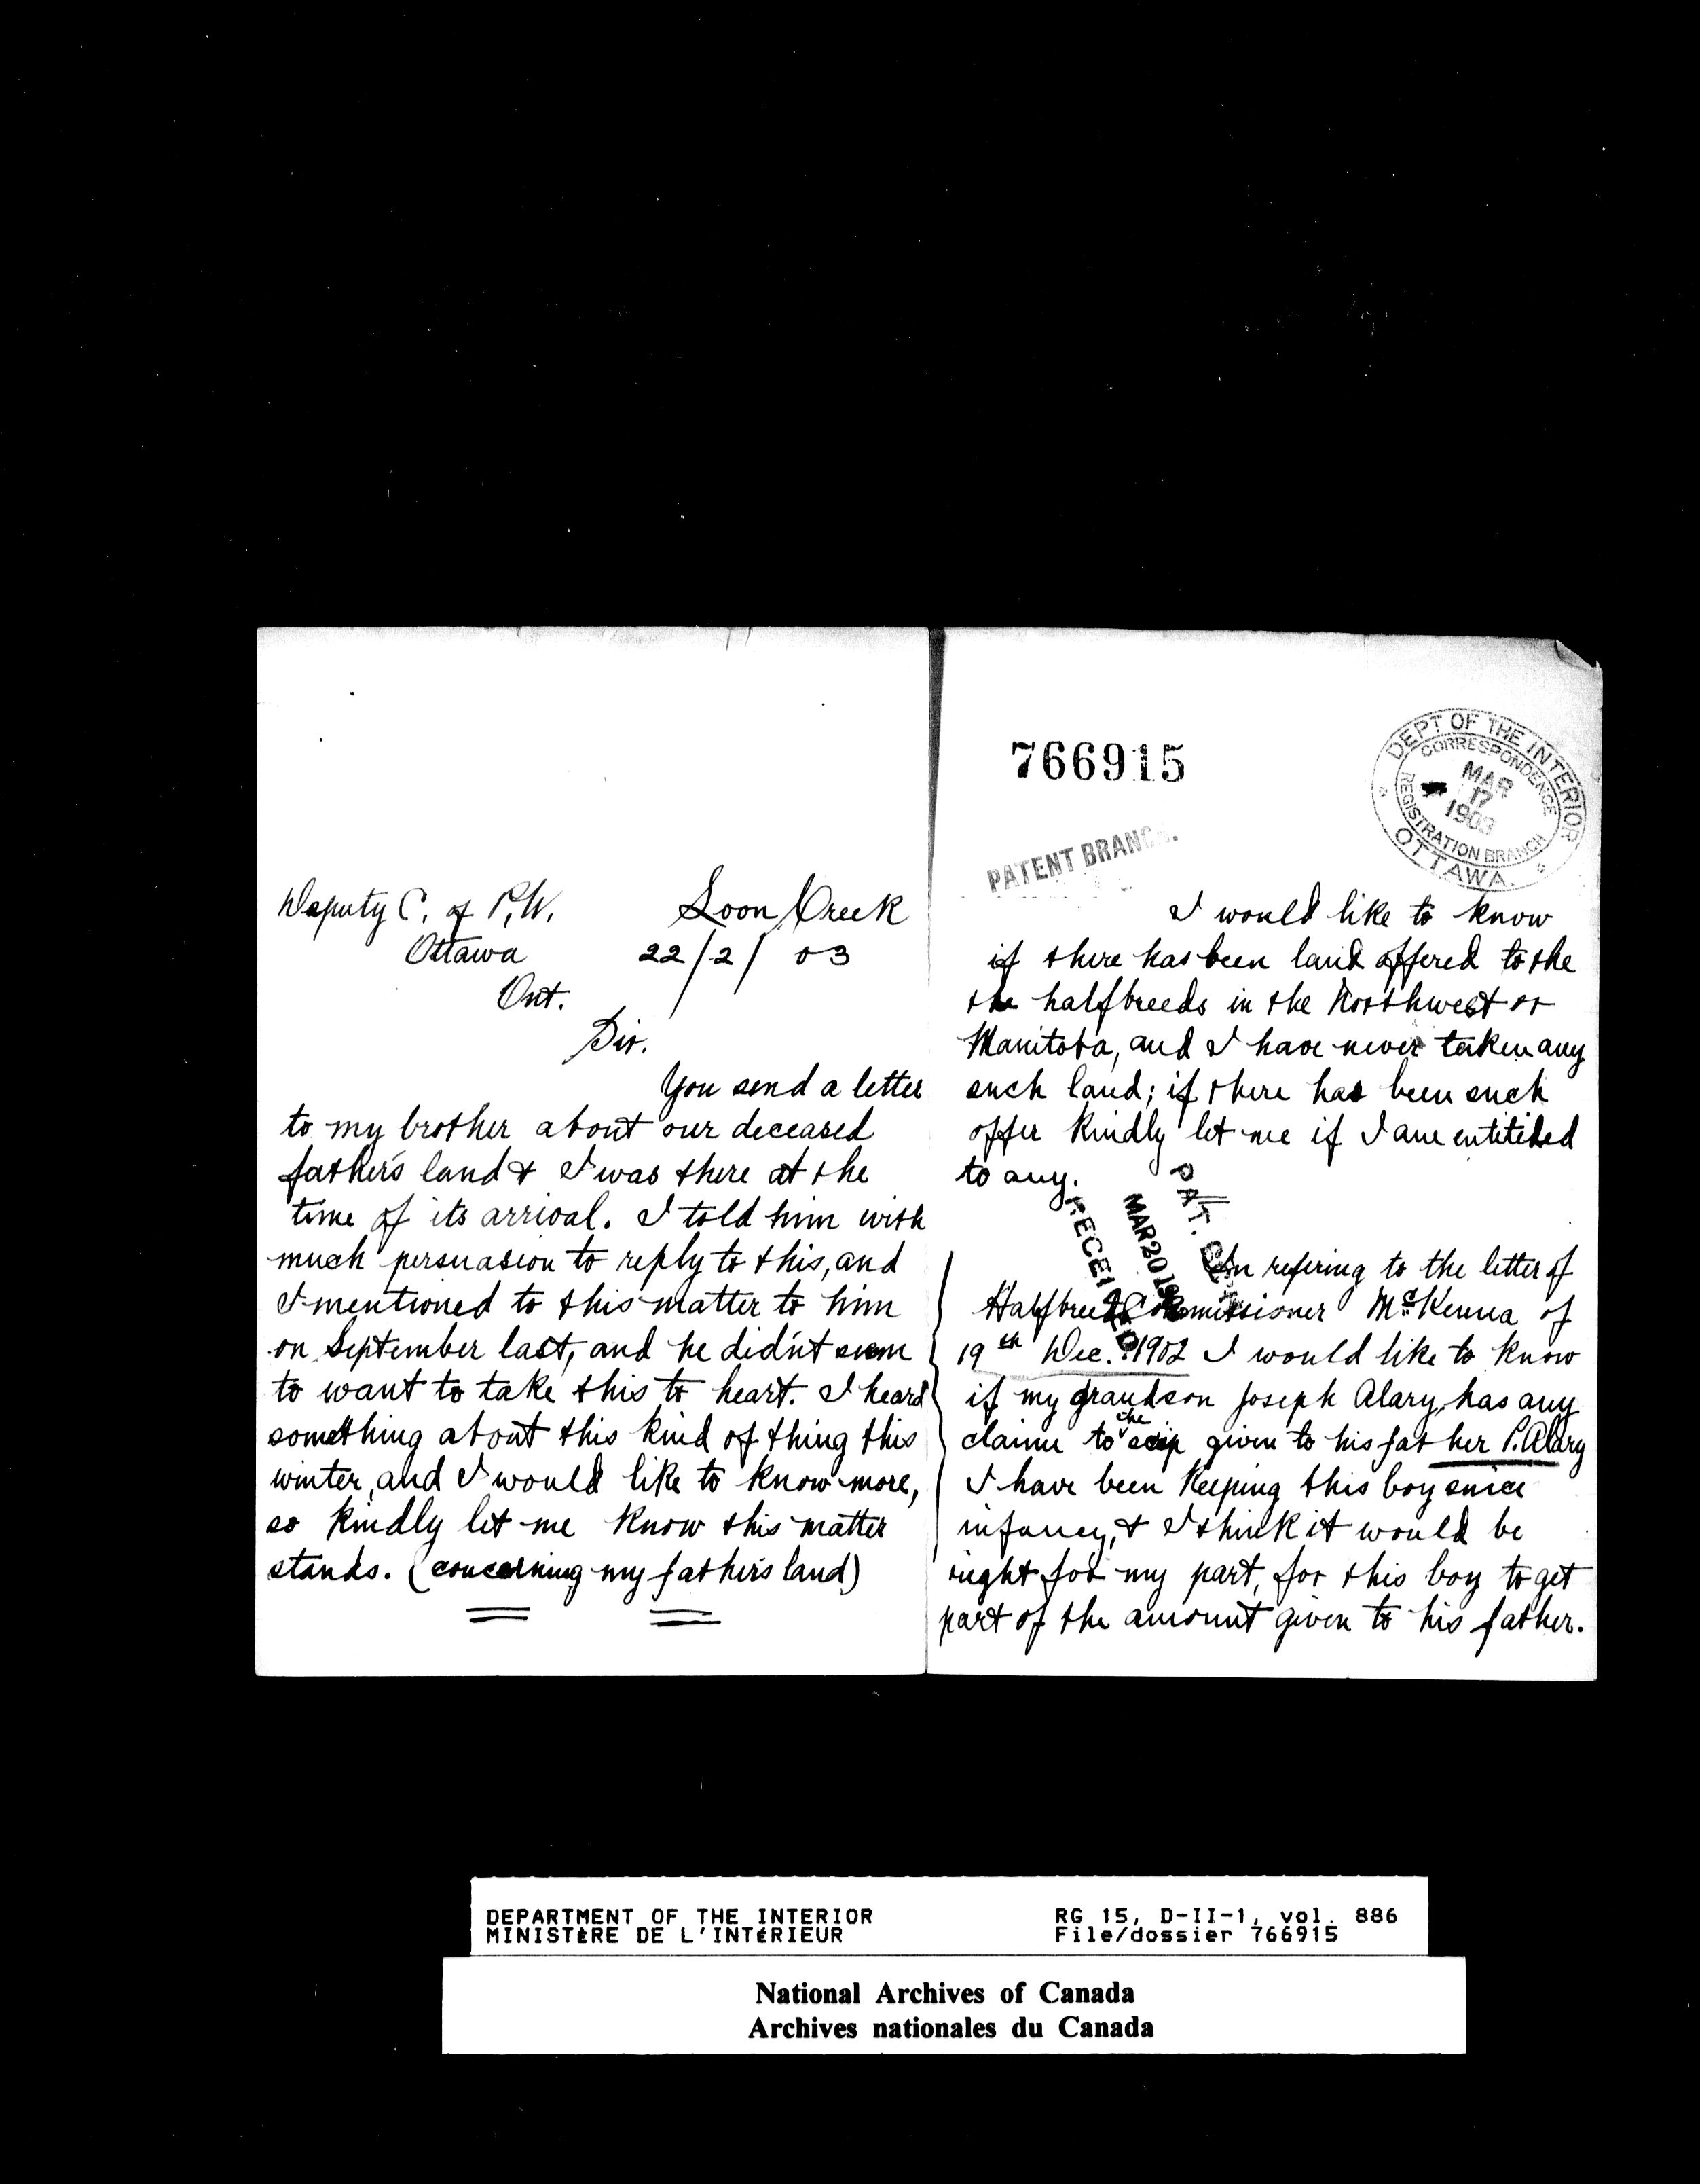 Deputy C. of P.W. Loon Creek
Ottawa 22/2/03
Ont.
Sir.
You send a letter
to my brother about our deceased
father's land & I was there at the
time of its arrival. I told him with
much persuasion to reply to this, and
I mentioned to this matter to him
on September last, and he did'nt seem
to want to take this to heart. I heard
something about this kind of thing this
winter, and I would like to know more,
so kindly let me know this matter
stands. (concerning my father's land)
766915
DEPT OF THE INTERIOR
CORRESPONDENCE
MAR
17
1903
REGISTRATION BRANCH
OTTAWA.
PATENT BRANCH.
I would like to know
if there has been land offered to the
the halfbreeds in the Northwest or
Manitoba, and I have never taken any
such land; if there has been such
offer kindly let me if I am entitited
to any.
PAT.
MAR 20
RECEIVED
In refering to the letter of
Halfbreed Commissioner McKenna of
19th Dec. 1902 I would like to know
if my grandson Joseph Alary, has any
claime to the scrip given to his father P. Alary
I have been keeping this boy since
infancy, & I think it would be
right for my part, for this boy to get
part of the amount given to his father.
DEPARTMENT OF THE INTERIOR RG 15, D-II-1, vol. 886
MINISTÈRE DE L'INTÉRIEUR File/dossier 766915
National Archives of Canada
Archives nationales du Canada